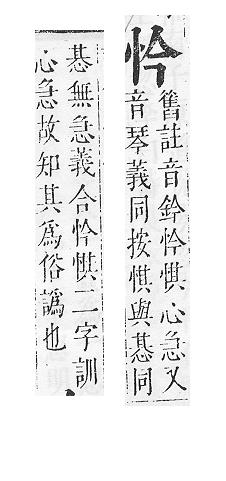 忴
舊註音鈐忴惧心急又
音琴義同按惧與惎同
惎無急義合忴惧二字訓
心急故知其爲俗譌也